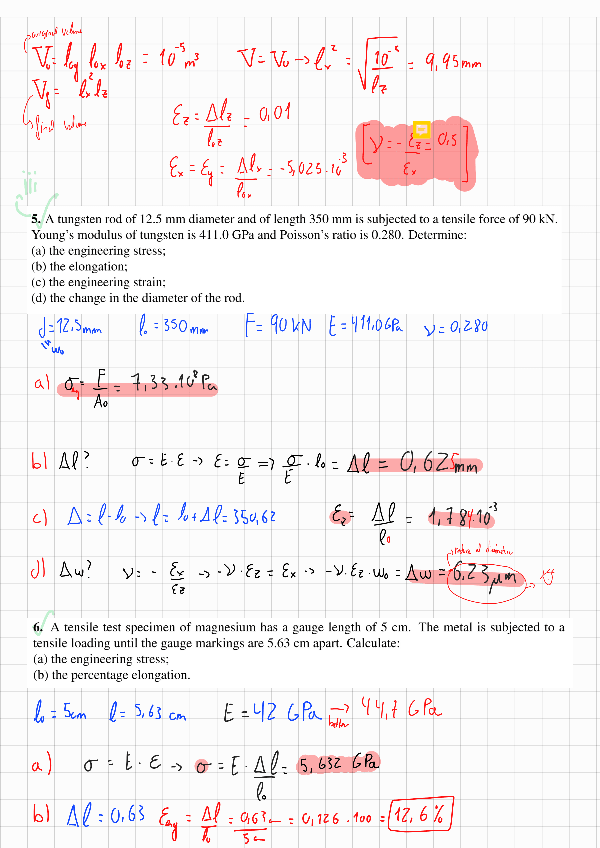 original volume
V₀ = l₀y l₀x l₀z = 10⁻⁵ m³ V = V₀ → lx² = √(10⁻⁵/lz) = 9,95 mm
Vf = lx² lz
final volume
εz = Δlz/l₀z = 0,01
[ν = - εz/εx = 0,5]
εx = εy = Δlx/l₀x = -5,025·10⁻³
iii
5. A tungsten rod of 12.5 mm diameter and of length 350 mm is subjected to a tensile force of 90 kN.
Young's modulus of tungsten is 411.0 GPa and Poisson's ratio is 0.280. Determine:
(a) the engineering stress;
(b) the elongation;
(c) the engineering strain;
(d) the change in the diameter of the rod.
d = 12,5 mm l₀ = 350 mm F = 90 kN E = 411,0 GPa ν = 0,280
w₀
a) σ = F/A₀ = 7,33·10⁸ Pa
b) Δl? σ = E·ε → ε = σ/E ⇒ σ/E · l₀ = Δl = 0,625 mm
c) Δ = l - l₀ → l = l₀ + Δl = 350,62 εz = Δl/l₀ = 1,784·10⁻³
d) Δw? ν = - εx/εz → -ν·εz = εx → -ν·εz·w₀ = Δw = 6,23 μm
6. A tensile test specimen of magnesium has a gauge length of 5 cm. The metal is subjected to a
tensile loading until the gauge markings are 5.63 cm apart. Calculate:
(a) the engineering stress;
(b) the percentage elongation.
l₀ = 5cm l = 5,63 cm E = 42 GPa → 44,7 GPa
better
a) σ = E·ε → σ = E·Δl/l₀ = 5,632 GPa
b) Δl = 0,63 εeng = Δl/l₀ = 0,63cm/5cm = 0,126·100 = 12,6%